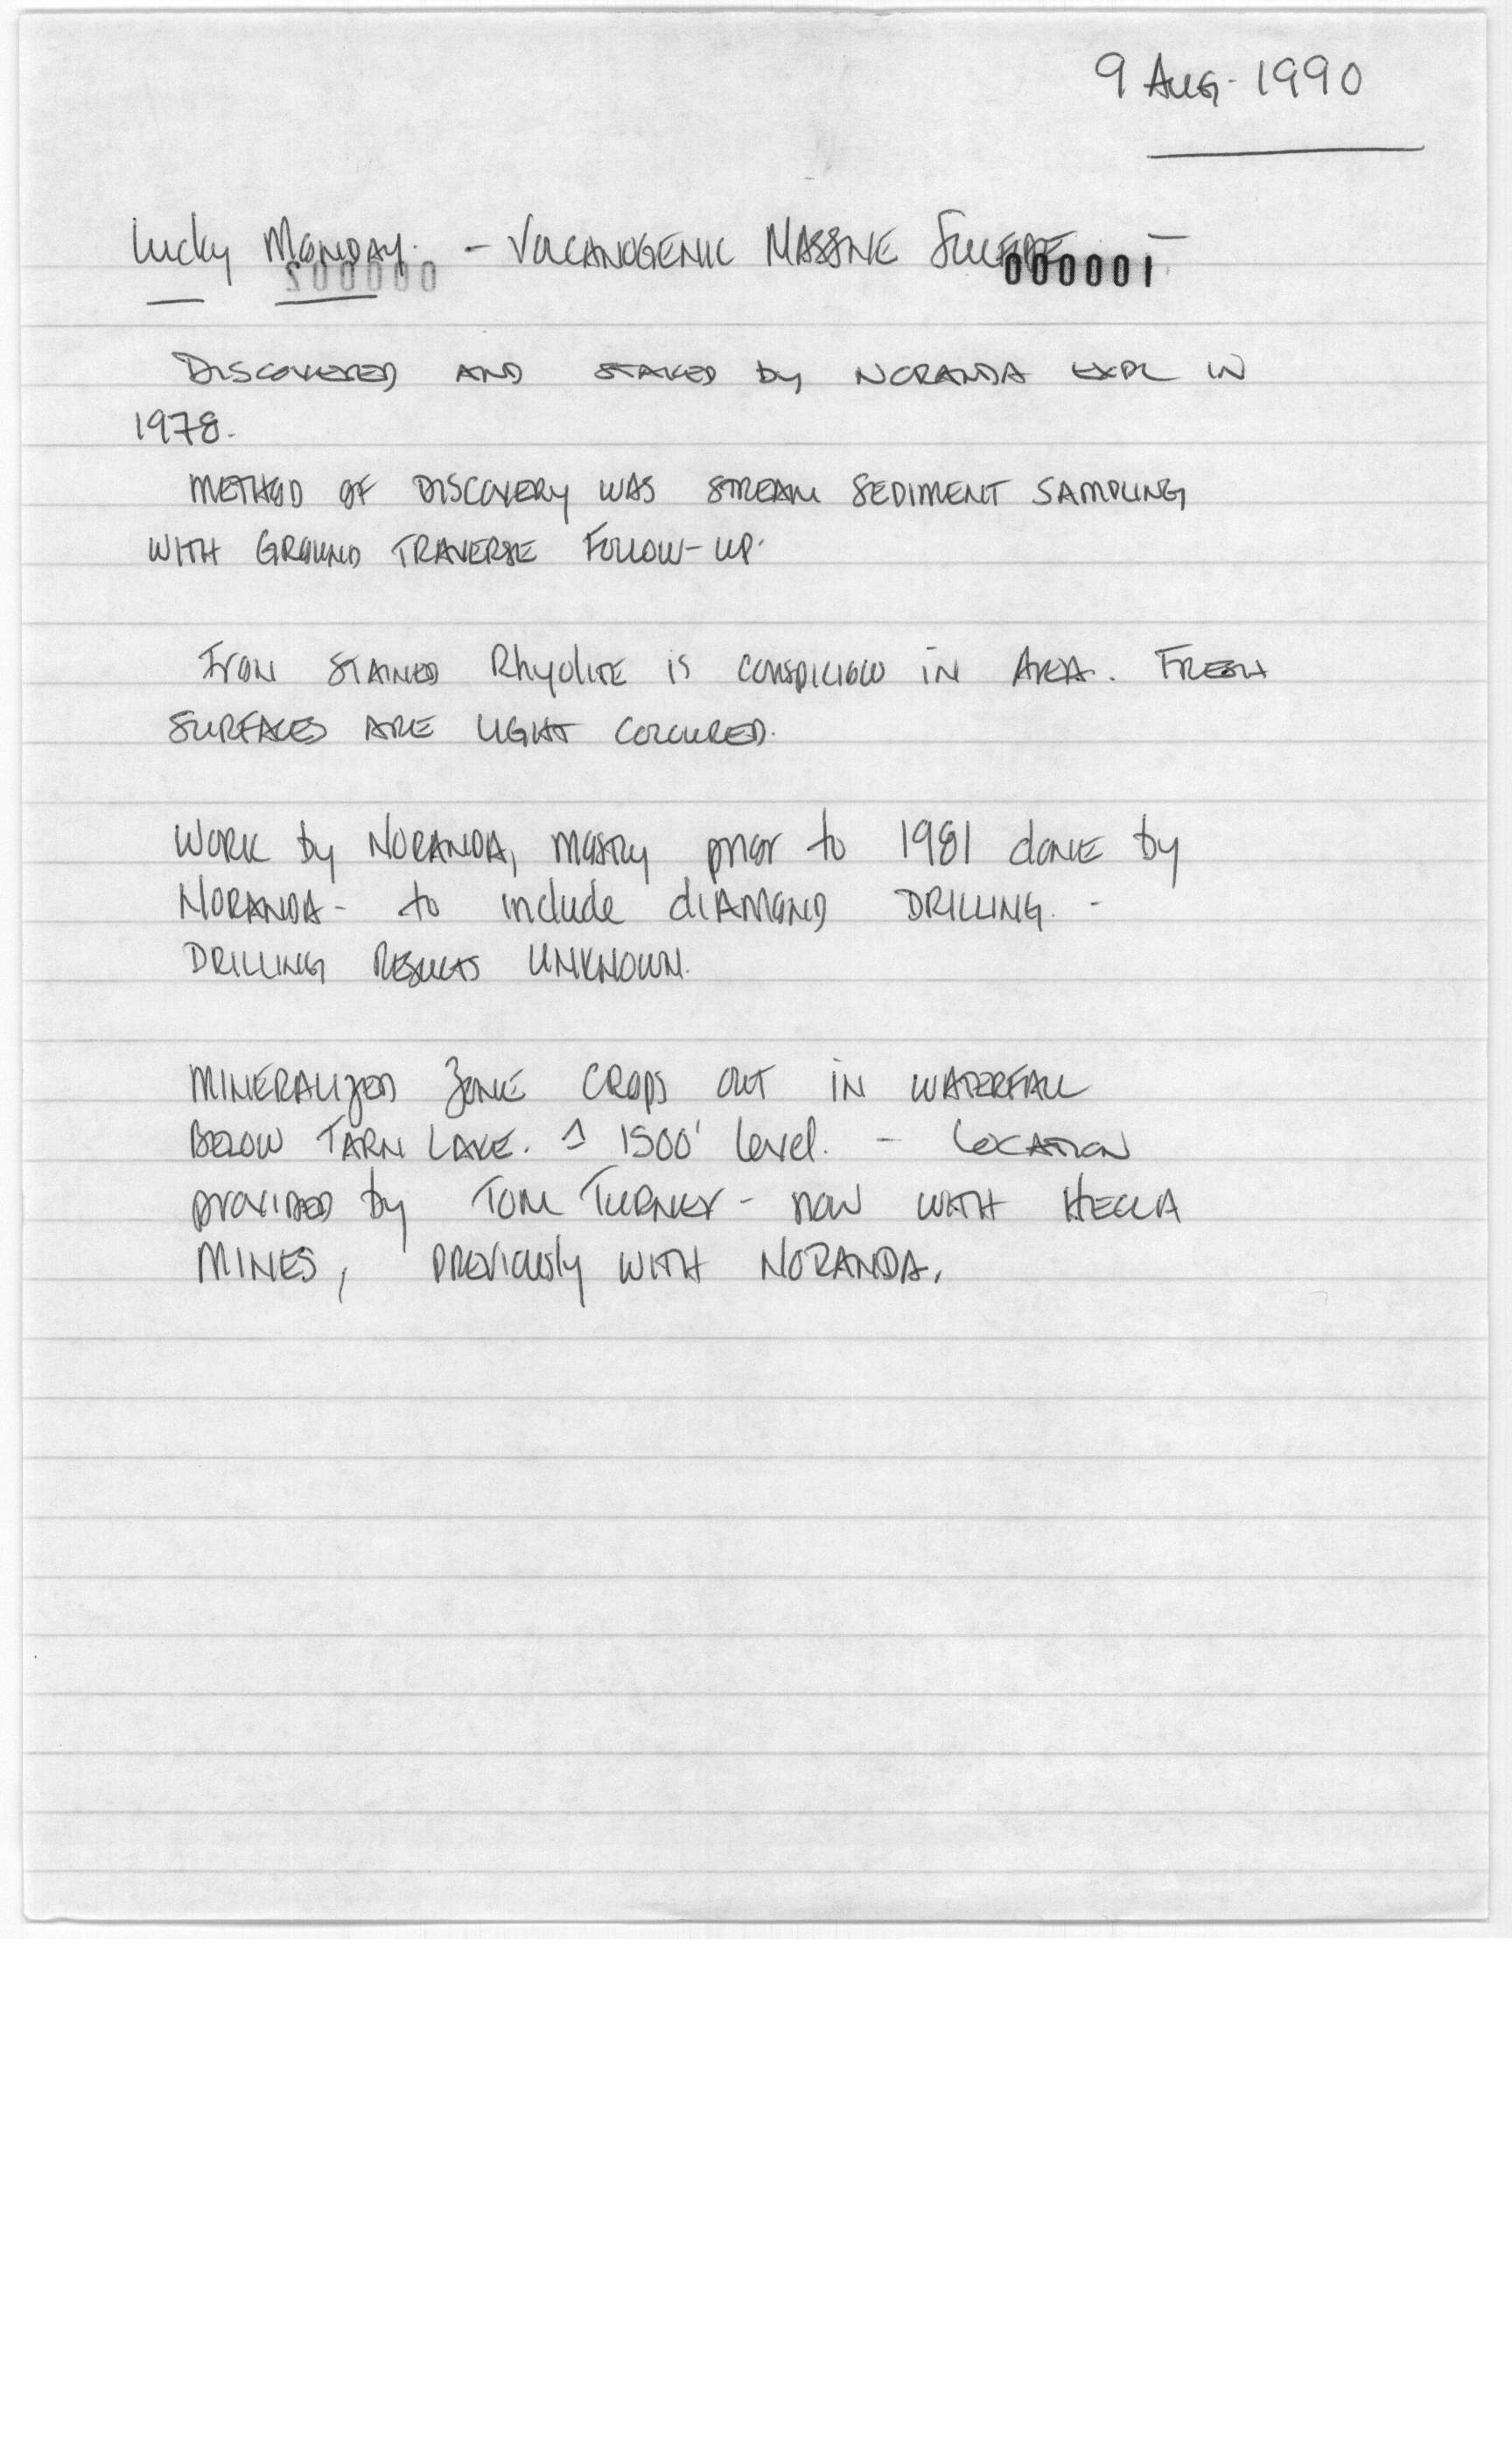 9 Aug. 1990
Lucky Monday. - VOLCANOGENIC MASSIVE SULFIDE -
000001
DISCOVERED AND STAKED by NORANDA EXPL IN
1978.
METHOD OF DISCOVERY WAS STREAM SEDIMENT SAMPLING
WITH GROUND TRAVERSE FOLLOW-UP.
Iron STAINED Rhyolite is in AREA. FRESH
SURFACES ARE LIGHT COLOURED.
WORK by NORANDA, mostly prior to 1981 done by
NORANDA - to include diamond DRILLING. -
DRILLING RESULTS UNKNOWN.
MINERALIZED ZONE CROPS OUT IN WATERFALL
BELOW TARN LAKE. 1500' level. - LOCATION
provided by TOM TURNER - now WITH HECLA
MINES, PREVIOUSLY WITH NORANDA.